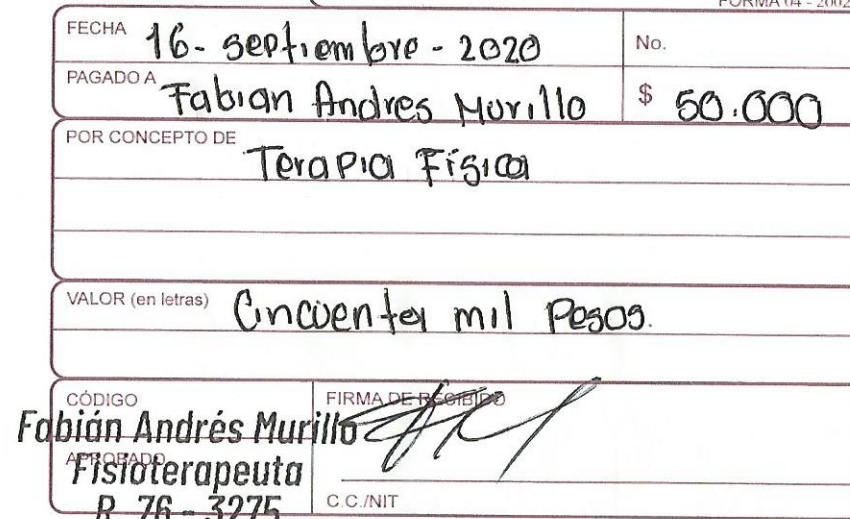 FORMA 04 - 2002
FECHA 16 - septiembre - 2020
No.
PAGADO A Fabian Andres Murillo
$ 50.000
POR CONCEPTO DE
Terapia Física
VALOR (en letras) Cincuenta mil Pesos.
CÓDIGO
FIRMA DE RECIBIDO
Fabián Andrés Murillo
APROBADO
Fisioterapeuta
R 76 - 3275
C.C./NIT